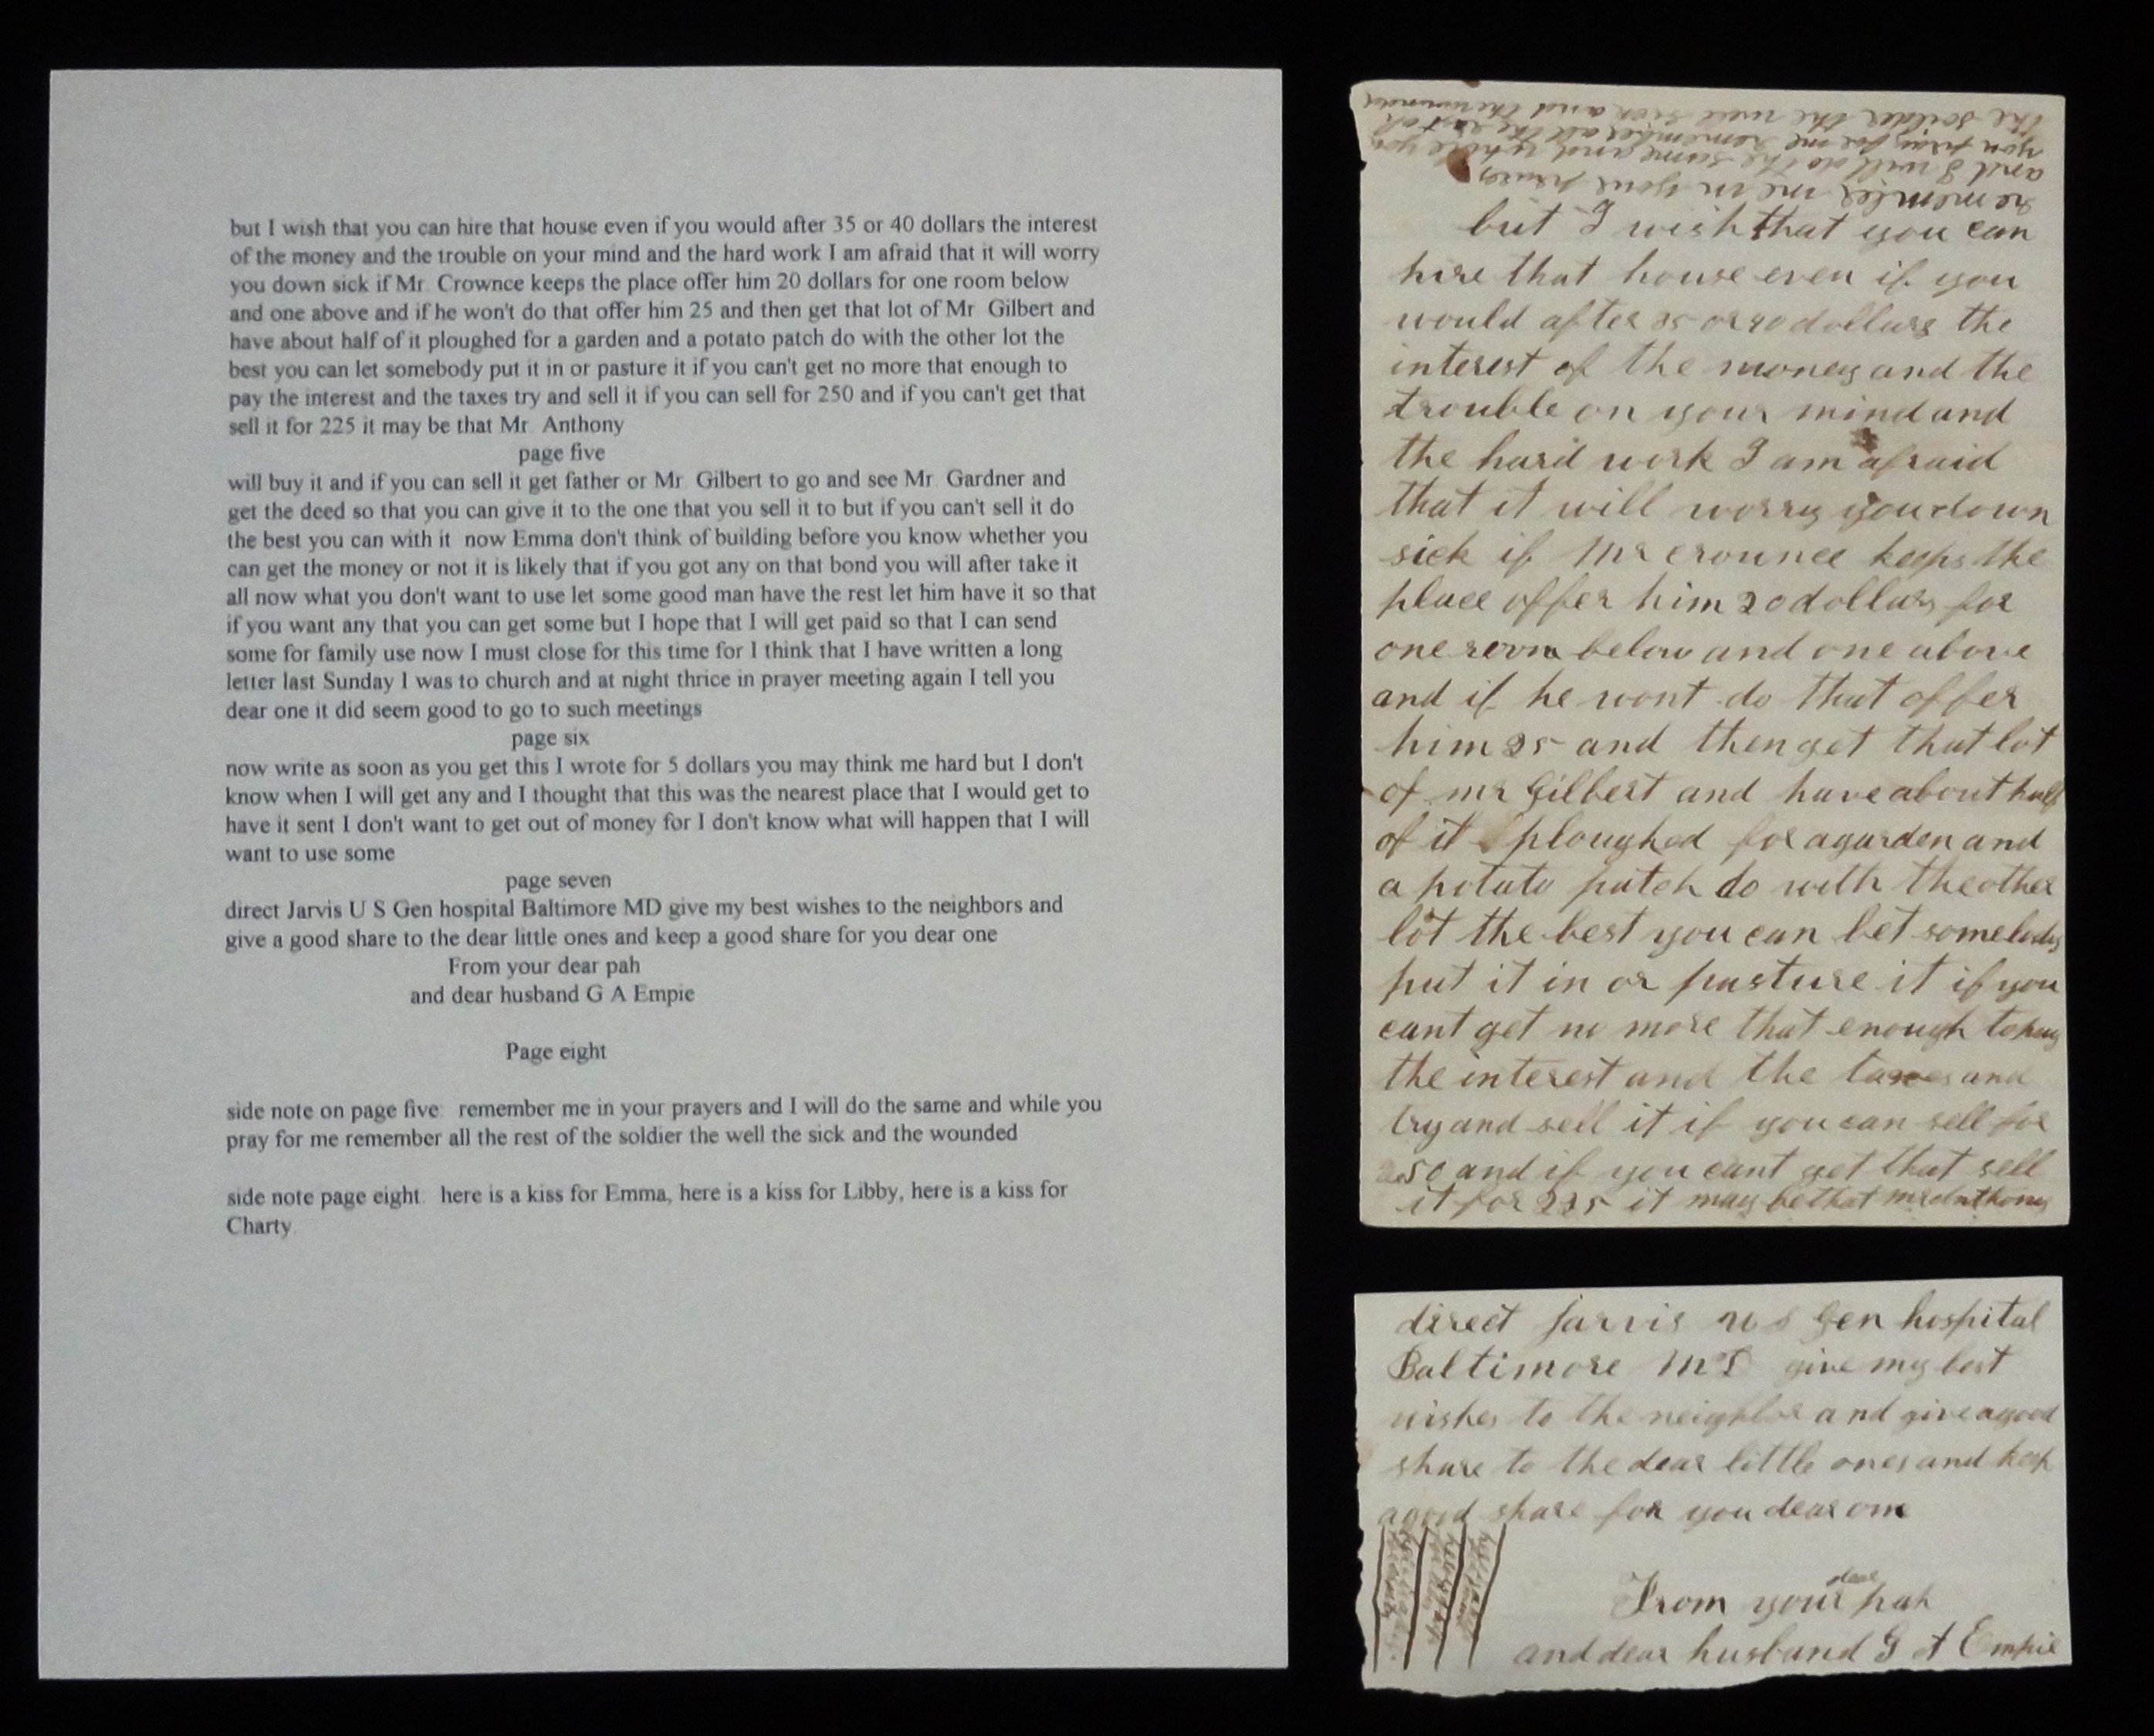 but I wish that you can hire that house even if you would after 35 or 40 dollars the interest
of the money and the trouble on your mind and the hard work I am afraid that it will worry
you down sick if Mr. Crownce keeps the place offer him 20 dollars for one room below
and one above and if he won't do that offer him 25 and then get that lot of Mr. Gilbert and
have about half of it ploughed for a garden and a potato patch do with the other lot the
best you can let somebody put it in or pasture it if you can't get no more that enough to
pay the interest and the taxes try and sell it if you can sell for 250 and if you can't get that
sell it for 225 it may be that Mr. Anthony
page five
will buy it and if you can sell it get father or Mr. Gilbert to go and see Mr. Gardner and
get the deed so that you can give it to the one that you sell it to but if you can't sell it do
the best you can with it now Emma don't think of building before you know whether you
can get the money or not it is likely that if you got any on that bond you will after take it
all now what you don't want to use let some good man have the rest let him have it so that
if you want any that you can get some but I hope that I will get paid so that I can send
some for family use now I must close for this time for I think that I have written a long
letter last Sunday I was to church and at night thrice in prayer meeting again I tell you
dear one it did seem good to go to such meetings
page six
now write as soon as you get this I wrote for 5 dollars you may think me hard but I don't
know when I will get any and I thought that this was the nearest place that I would get to
have it sent I don't want to get out of money for I don't know what will happen that I will
want to use some
page seven
direct Jarvis U S Gen hospital Baltimore MD give my best wishes to the neighbors and
give a good share to the dear little ones and keep a good share for you dear one
From your dear pah
and dear husband G A Empie
Page eight
side note on page five: remember me in your prayers and I will do the same and while you
pray for me remember all the rest of the soldier the well the sick and the wounded
side note page eight: here is a kiss for Emma, here is a kiss for Libby, here is a kiss for
Charty.
remember me in your praies
and I will do the same and while you
you pray for me remember all the rest of
the soilder the well sick and the wounded
but I wish that you can
hire that house even if you
would after 35 or 40 dollars the
interest of the money and the
trouble on your mind and
the hard work I am afraid
that it will worry you down
sick if Mr crounce keeps the
place offer him 20 dollars for
one room below and one above
and if he wont do that offer
him 25 and then get that lot
of mr Gilbert and have about half
of it ploughed for a garden and
a potato patch do with the other
lot the best you can let somebody
put it in or pasture it if you
cant get no more that enough to pay
the interest and the taxes and
try and sell it if you can sell for
250 and if you cant get that sell
it for 225 it may be that mr Anthony
direct jarvis U S Gen hospital
Baltimore MD give my best
wishes to the neighbor and give a good
share to the dear little ones and keep
a good share for you dear one
From your dear pah
and dear husband G A Empie